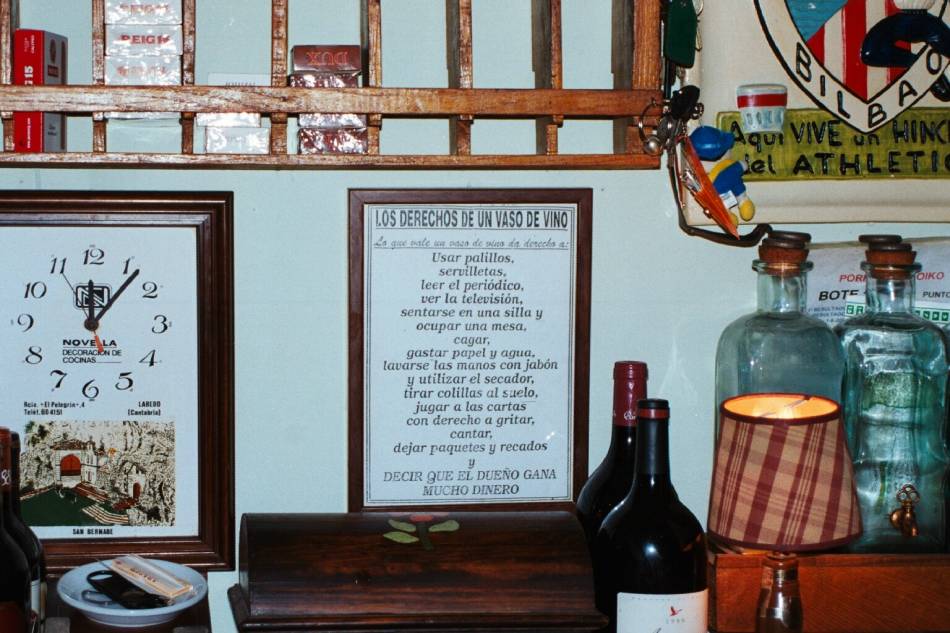 REIG
REIG
REIG15
DUX
BILBAO
Aquí VIVE un HINC
del ATHLETI
LOS DERECHOS DE UN VASO DE VINO
Lo que vale un vaso de vino da derecho a:
Usar palillos,
servilletas,
leer el periódico,
ver la televisión,
sentarse en una silla y
ocupar una mesa,
cagar,
gastar papel y agua,
lavarse las manos con jabón
y utilizar el secador,
tirar colillas al suelo,
jugar a las cartas
con derecho a gritar,
cantar,
dejar paquetes y recados
y
DECIR QUE EL DUEÑO GANA
MUCHO DINERO
12
11
1
10
2
9
3
8
4
7
5
6
NOVELLA
DECORACION DE
COCINAS
Rcia. «El Pelegrin»,4
Teléf. 60 41 51
LAREDO
(Cantabria)
SAN BERNABE
OIKO
BOTE
PUNTO